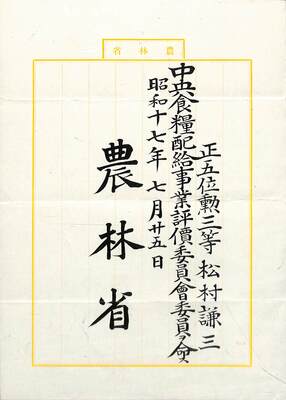 省林農
正五位勲三等 松村謙三
中央食糧配給事業評價委員會委員ヲ命ス
昭和十七年 七月廿五日
農林省